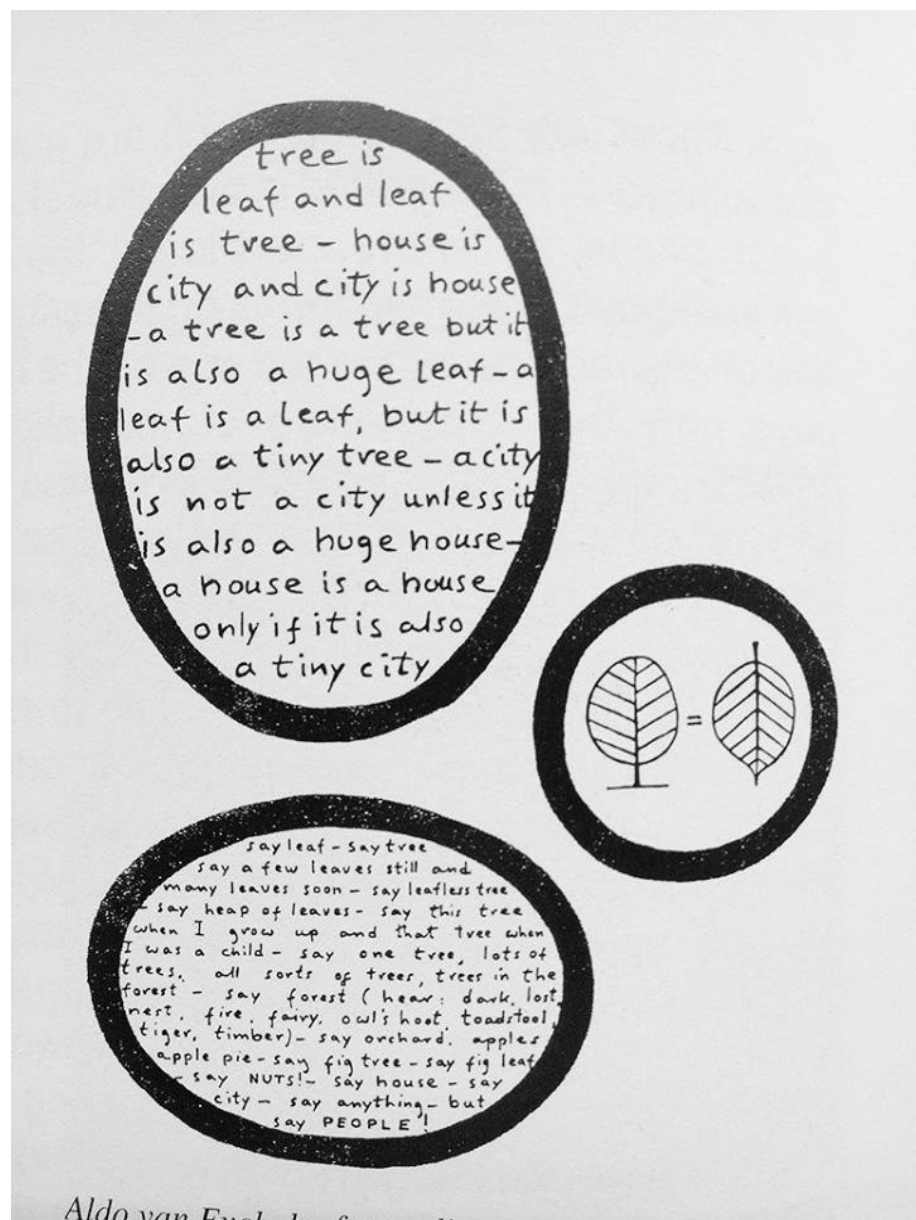 tree is
leaf and leaf
is tree – house is
city and city is house
– a tree is a tree but it
is also a huge leaf – a
leaf is a leaf, but it is
also a tiny tree – a city
is not a city unless it
is also a huge house –
a house is a house
only if it is also
a tiny city
=
say leaf – say tree
say a few leaves still and
many leaves soon – say leafless tree
– say heap of leaves – say this tree
when I grow up and that tree when
I was a child – say one tree, lots of
trees, all sorts of trees, trees in the
forest – say forest (hear: dark, lost,
nest, fire, fairy, owl's hoot, toadstool,
tiger, timber) – say orchard, apples
apple pie – say fig tree – say fig leaf
– say NUTS! – say house – say
city – say anything – but
say PEOPLE!
Aldo van